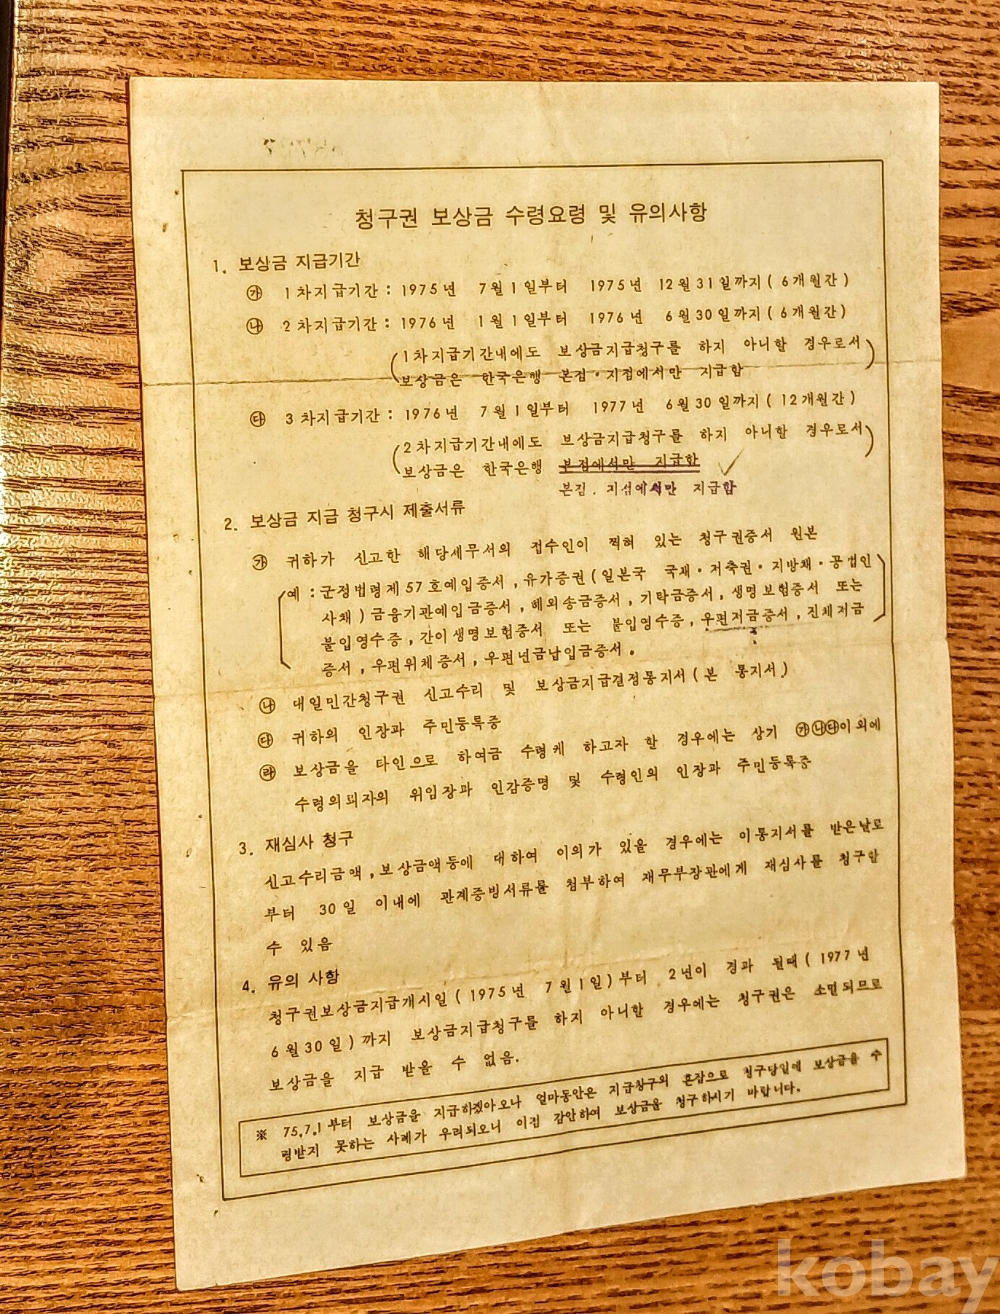 청구권 보상금 수령요령 및 유의사항
1. 보상금 지급기간
㉮ 1차지급기간 : 1975년 7월1일부터 1975년 12월31일까지 ( 6개월간 )
㉯ 2차지급기간 : 1976년 1월1일부터 1976년 6월30일까지 ( 6개월간 )
( 1차지급기간내에도 보상금지급청구를 하지 아니할 경우로서
보상금은 한국은행 본점·지점에서만 지급함 )
㉰ 3차지급기간 : 1976년 7월1일부터 1977년 6월30일까지 ( 12개월간 )
( 2차지급기간내에도 보상금지급청구를 하지 아니할 경우로서
보상금은 한국은행 본점에서만 지급함 )
본점. 지점에서만 지급함
2. 보상금 지급 청구시 제출서류
㉮ 귀하가 신고한 해당세무서의 접수인이 찍혀 있는 청구권증서 원본
( 예 : 군정법령제57호예입증서 , 유가증권 ( 일본국 국채·저축권·지방채·공법인
사채 ) 금융기관예입금증서 , 해외송금증서 , 기탁금증서 , 생명보험증서 또는
불입영수증 , 간이생명보험증서 또는 불입영수증 , 우편저금증서 , 진체저금
증서 , 우편위체증서 , 우편년금납입금증서 . )
㉯ 대일민간청구권 신고수리 및 보상금지급결정통지서 ( 본 통지서 )
㉰ 귀하의 인장과 주민등록증
㉱ 보상금을 타인으로 하여금 수령케 하고자 할 경우에는 상기 ㉮㉯㉰이외에
수령의뢰자의 위임장과 인감증명 및 수령인의 인장과 주민등록증
3. 재심사 청구
신고수리금액 , 보상금액등에 대하여 이의가 있을 경우에는 이통지서를 받은날로
부터 30일 이내에 관계증빙서류를 첨부하여 재무부장관에게 재심사를 청구할
수 있음
4. 유의 사항
청구권보상금지급개시일 ( 1975년 7월1일 ) 부터 2년이 경과 될때 ( 1977년
6월30일 ) 까지 보상금지급청구를 하지 아니할 경우에는 청구권은 소멸되므로
보상금을 지급 받을 수 없음.
※ 75.7.1부터 보상금을 지급하겠아오나 얼마동안은 지급창구의 혼잡으로 청구당일에 보상금을 수
령받지 못하는 사례가 우려되오니 이점 감안하여 보상금을 청구하시기 바랍니다.
kobay